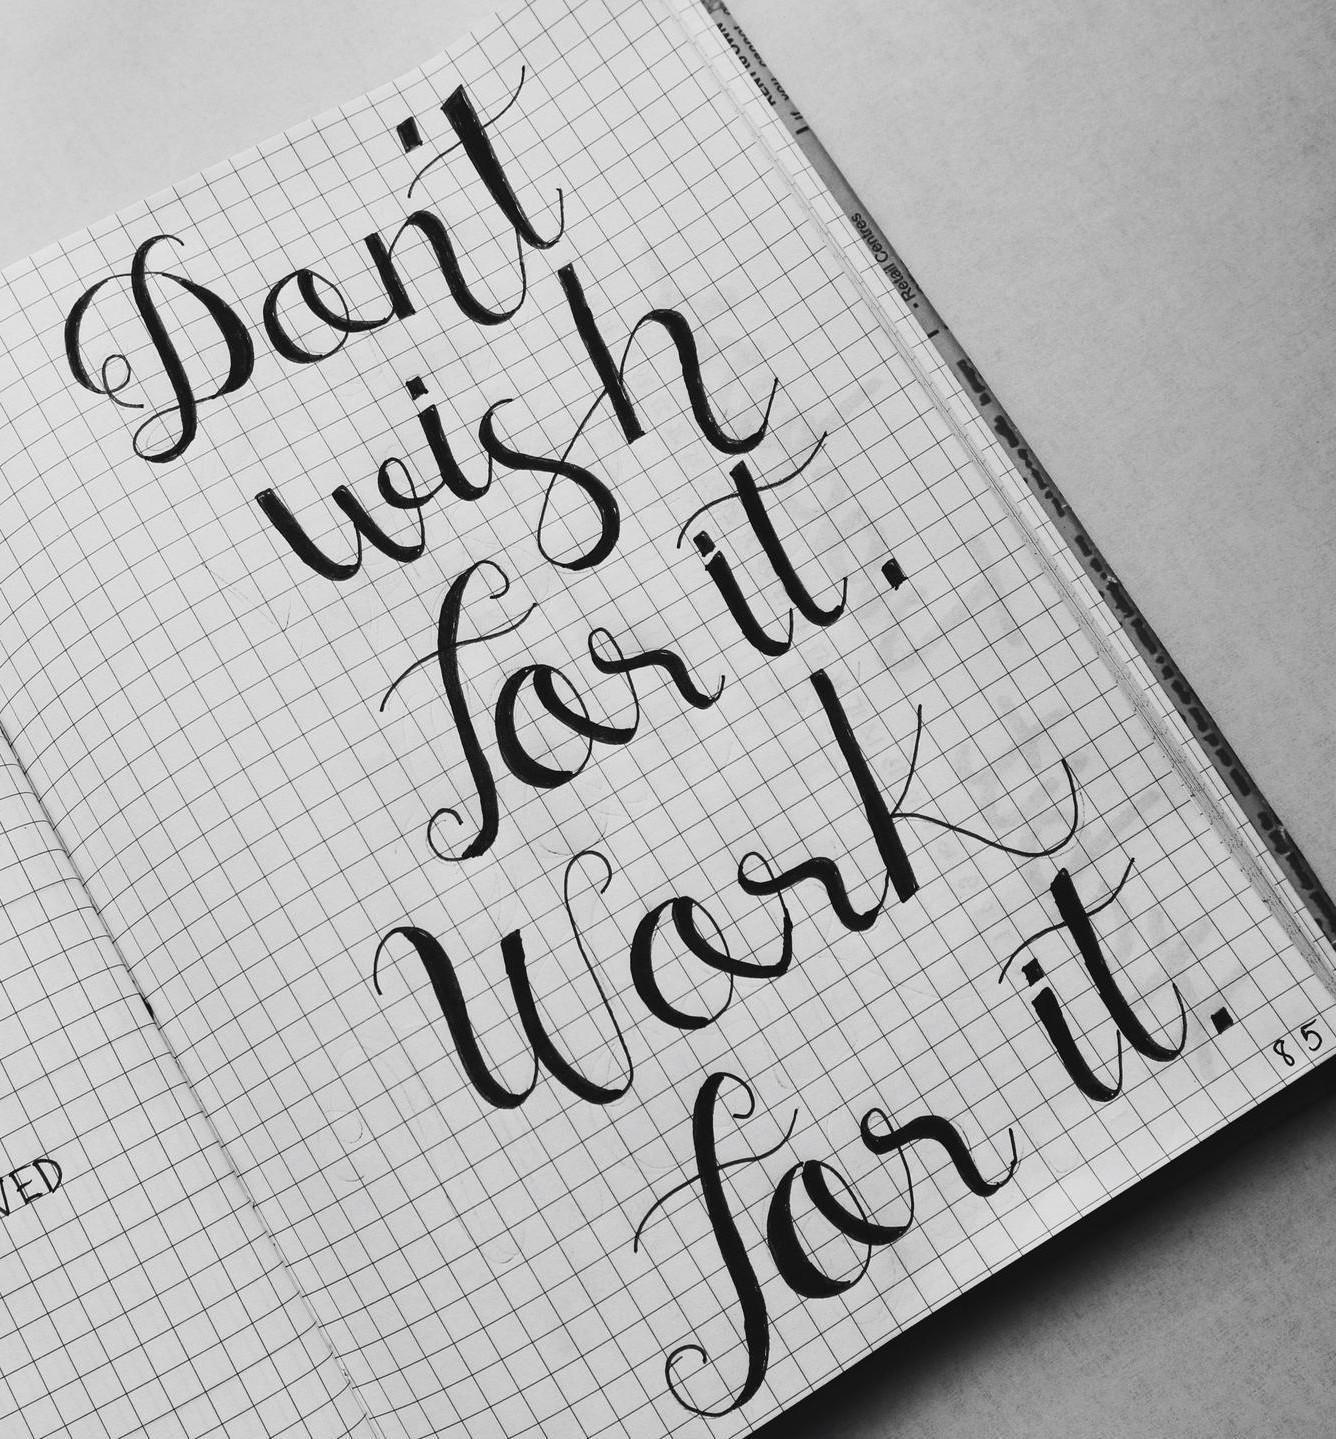 Don't
wish
for it.
Work
for it.
85
VED
RENT to OWN
• Retail Centres